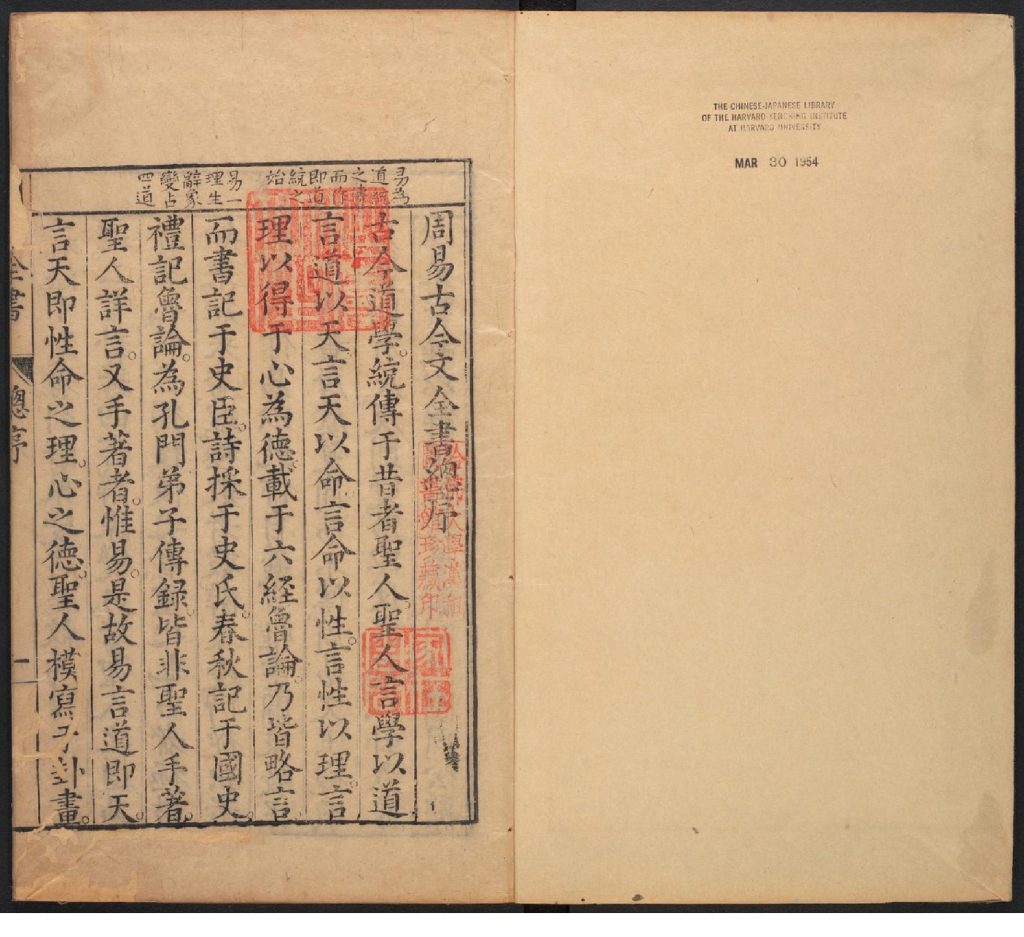 THE CHINESE-JAPANESE LIBRARY
OF THE HARVARD-YENCHING INSTITUTE
AT HARVARD UNIVERSITY
MAR 30 1954
易為
道統
之
而作
即道
統之
始
易一
理生
辭象
變占
四道
周易古今文全書總序
古今道學統傳于昔者聖人聖人言學以道
言道以天言天以命言命以性言性以理言
理以得于心為德載于六經魯論乃皆略言
而書記于史臣詩採于史氏春秋記于國史
禮記魯論為孔門弟子傳錄皆非聖人手著
聖人詳言又手著者惟易是故易言道即天
言天即性命之理心之德聖人模寫于卦畫
全書
總序
一
哈佛大學漢和
圖書館珍藏印